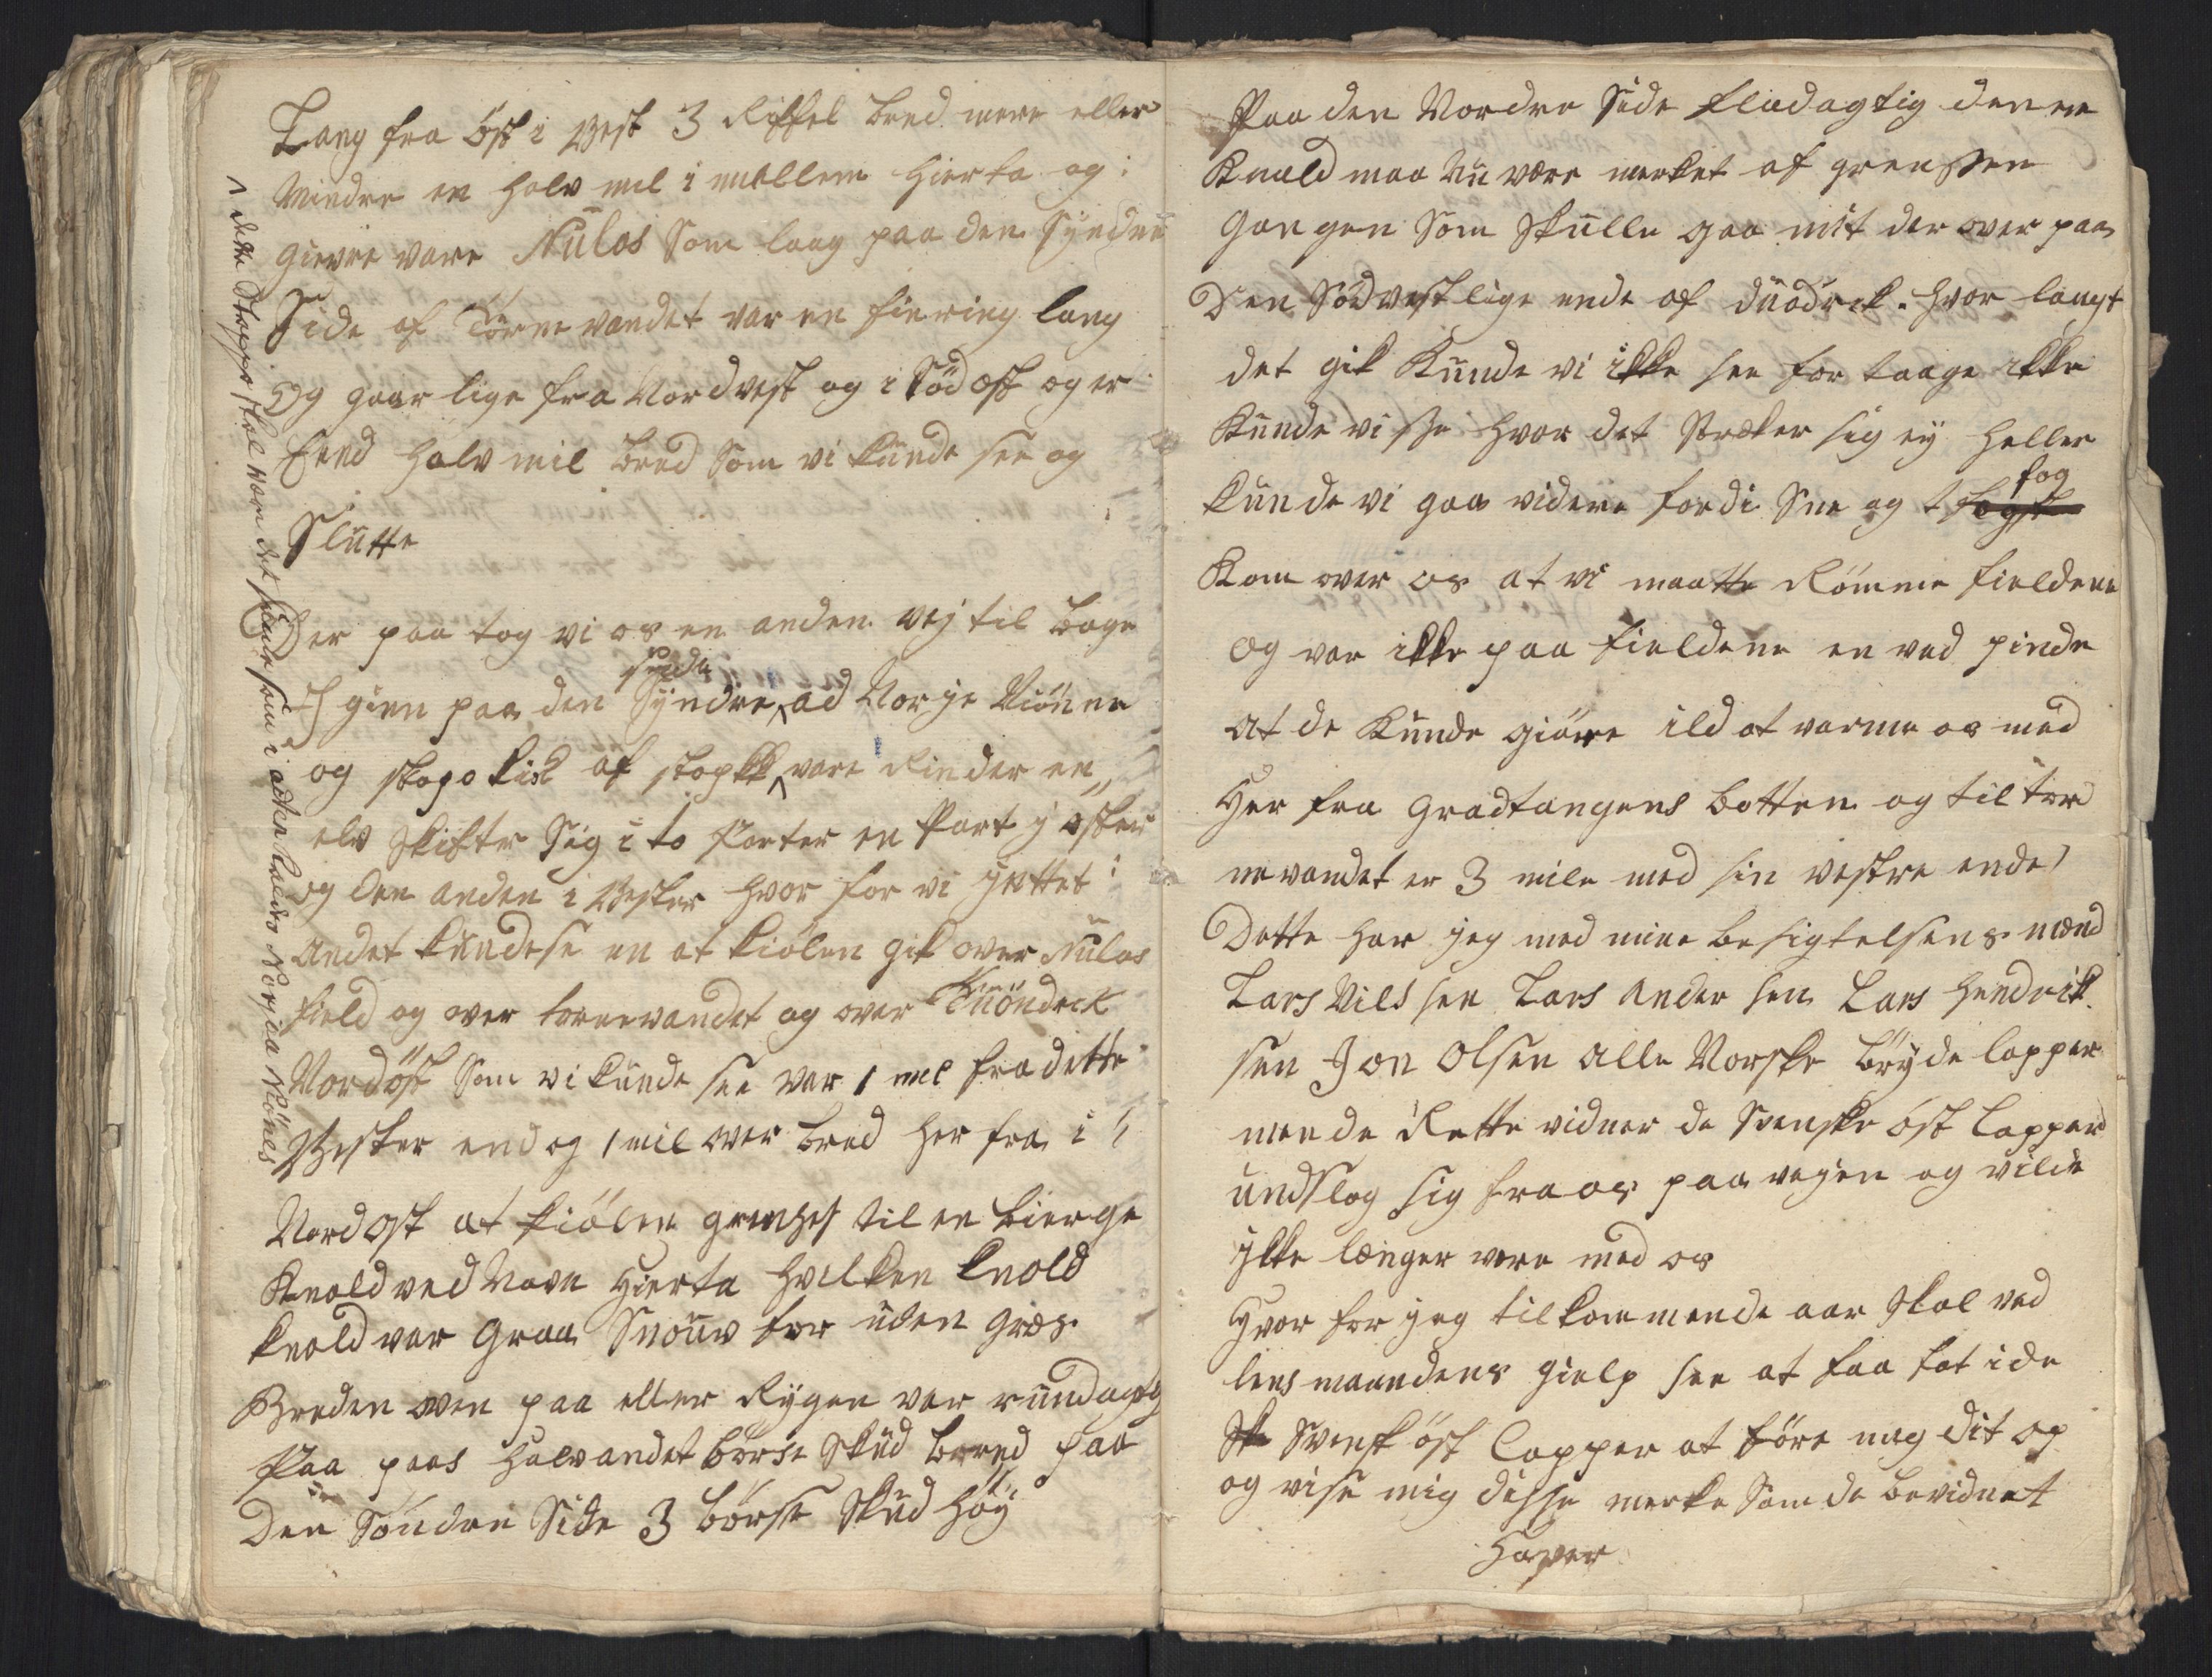 Lang fra öst i Vest 3 Riffel bred mere eller
mindre en halv mil i mellem Hierta og
giævre vare Nulos Som laag paa den Syndre
Side af Torne vandet var en fiering lang
og gaar lige fra Nordvest og i Südost og er
End halv mil bred Som vi kunde see og
Slutte
Der paa tog vi os en anden vej til bage
I gien paa den Syndre side ad Norje Niönne
og af vare Rinder en
elv Skifter Sig i to Parter en Part j öster
og den anden i Vester hvor for vi
andet kunde se en at kiölen gik over Nulos
field og over tornevandet og over Duöndreck
Nordöst Som vi kunde see var 1 mil fra dette
Vester end og 1 mil over bred her fra i
Nordost at kiölen grenses til en bierge
Knold ved Navn Hierta hvilken knold
knold var graa for uden græs.
Breden oven paa eller Rygen var rundagtig
Paa pas halvandet börse Skud bered paa
Den Söndre Side 3 börse Skud höy
dette skal være det samme som i aften kaldes Norjaa Niönes
Paa den Nordre Side fladagtig denne
Knold maa Nu være merket af grensen
gangen Som Skulle gaa mit der over paa
Den Södvestlige ende af duodreck. hvor langt
det gik Kunde vi ikke see for taage ikke
Kunde vi se hvor det Streker sig ey heller
kunde vi gaa videre fordi Sne og fog
Kom over os at vi maatte Römme fieldene
og var ikke paa fieldene en ved pinde
at de Kunde giöre ild at varme os med
Her fra Gradtangens botten og til tor
nevandet er 3 mile med sin vestre ende
Dette har jeg med mine besigtelsens mænd
Lars Nilssen Lars Andersen Lars Hendrik
sen Jon Olsen alle Norske böyde lapper
men de Rette vidner de Svenske öst lapper
undslog sig fra os paa veyen og vilde
ikke længer være med os
Hvor for jeg tilkommende aar skal ved
lensmandens hielp see at faa fat i de
Svensk öst lapper at före meg dit op
og vise mig disse merke Som de bevidnet
Haver